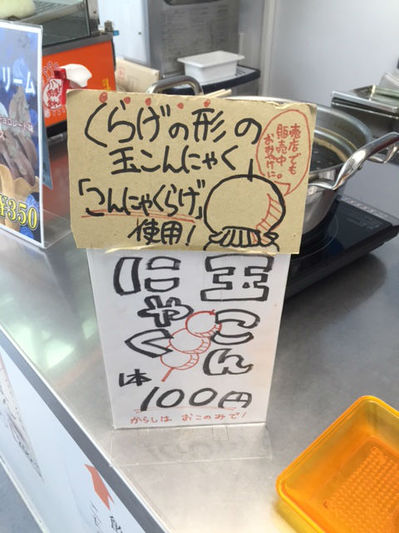 くらげの形の
玉こんにゃく
「こんにゃくらげ」
使用!
売店でも
販売中。
おみやげに
玉こん
にゃく
1本
100円
からしは おこのみで!
リーム
¥350